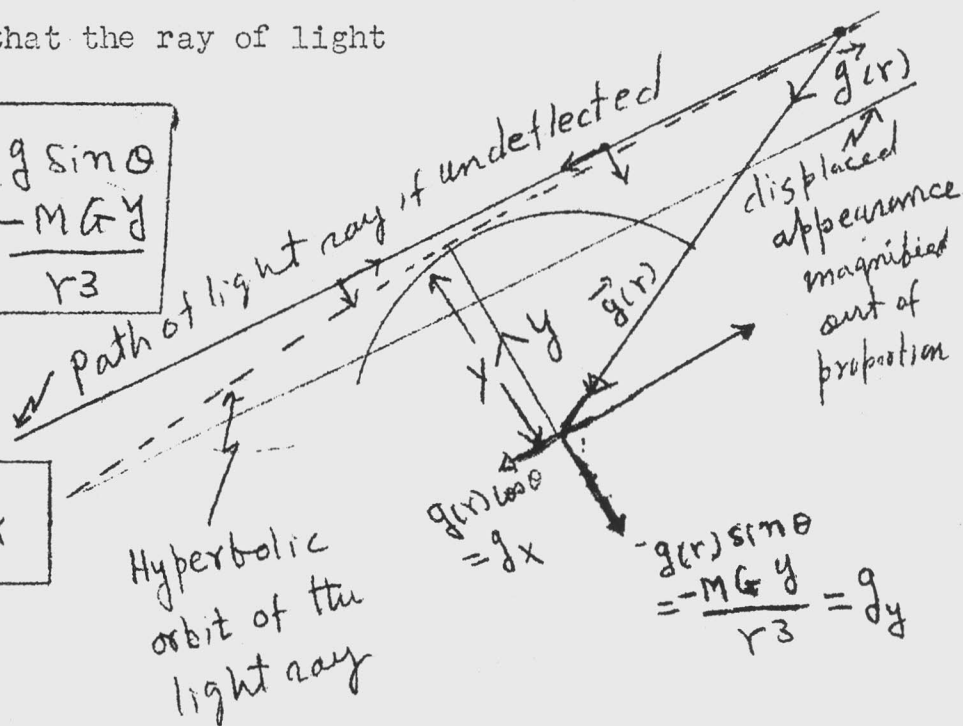 that the ray of light
g sin θ
-MGy
r3
Path of light ray if undeflected
g⃗(r)
displaced
appearance
magnified
out of
proportion
g⃗(r)
y
y
g(r) cos θ
= gx
-g(r) sin θ
= -MG y
r3
= gy
Hyperbolic
orbit of the
light ray